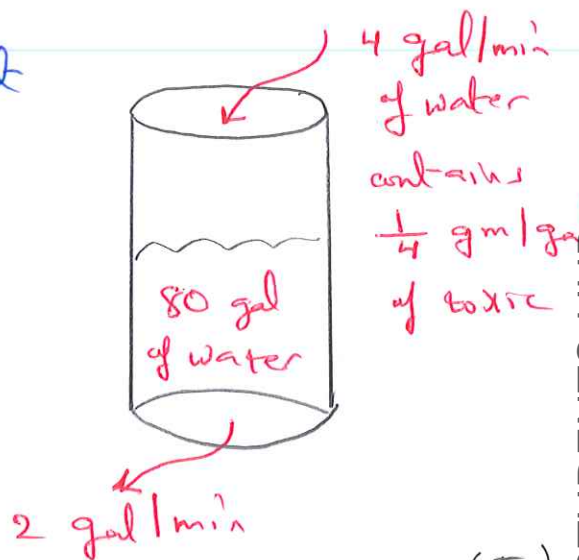 4 gal/min
of water
contains
1/4 gm/ga
of toxic
80 gal
of water
2 gal/min